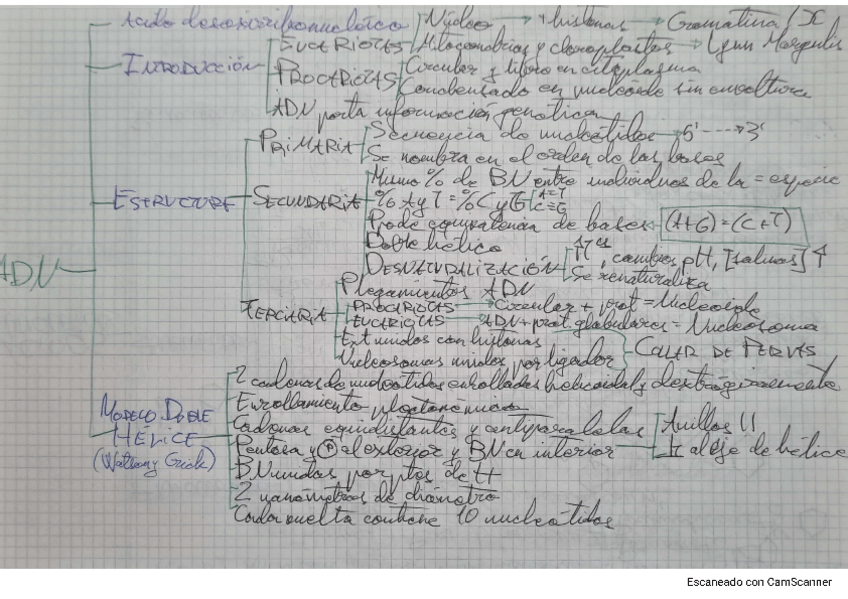 Ácido desoxirribonucleico
Núcleo → + histonas → Cromatina / X
EUCARIOTAS
Mitocondrias y cloroplastos → Lynn Margulis
INTRODUCCIÓN
PROCARIOTAS
Circular y libre en citoplasma
Condensado en nucleoide sin envoltura
ADN porta información genética
PRIMARIA
Secuencia de nucleótidos → 5' ----→ 3'
Se nombra en el orden de las bases
Mismo % de BN entre individuos de la = especie
ESTRUCTURA
SECUNDARIA
% A y T = % C y G A=T C≡G
equivalencia de bases (A+G)=(C+T)
Doble hélice
DESNATURALIZACIÓN
↑Tª, cambios pH, [salinas] ↑
Se renaturaliza
ADN
TERCIARIA
Plegamientos ADN
PROCARIOTAS → Circular + prot = Nucleoide
EUCARIOTAS → ADN + prot. globulares = Nucleosoma
con histonas
Nucleosomas unidos por ligador
COLLAR DE PERLAS
2 cadenas de nucleótidos enrolladas helicoidal y dextrógiramente
MODELO DOBLE
HÉLICE
(Watson y Crick)
Enrollamiento plectonémico
Cadenas equidistantes y antiparalelas
Pentosa y P al exterior y BN en interior
Anillos ||
⊥ al eje de hélice
BN unidas por ptes de H
2 nanómetros de diámetro
Cada vuelta contiene 10 nucleótidos
Escaneado con CamScanner